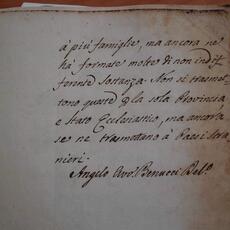 à più famiglie, ma ancora ne
hà formate molte di non indif
ferente Sostanza. Non si trasmet=
tono queste p la sola Provincia
e Stato Ecclesiastico, ma ancora
se ne trasmettano à Paesi stra
nieri.
Angelo Avv.º Benucci Del.º